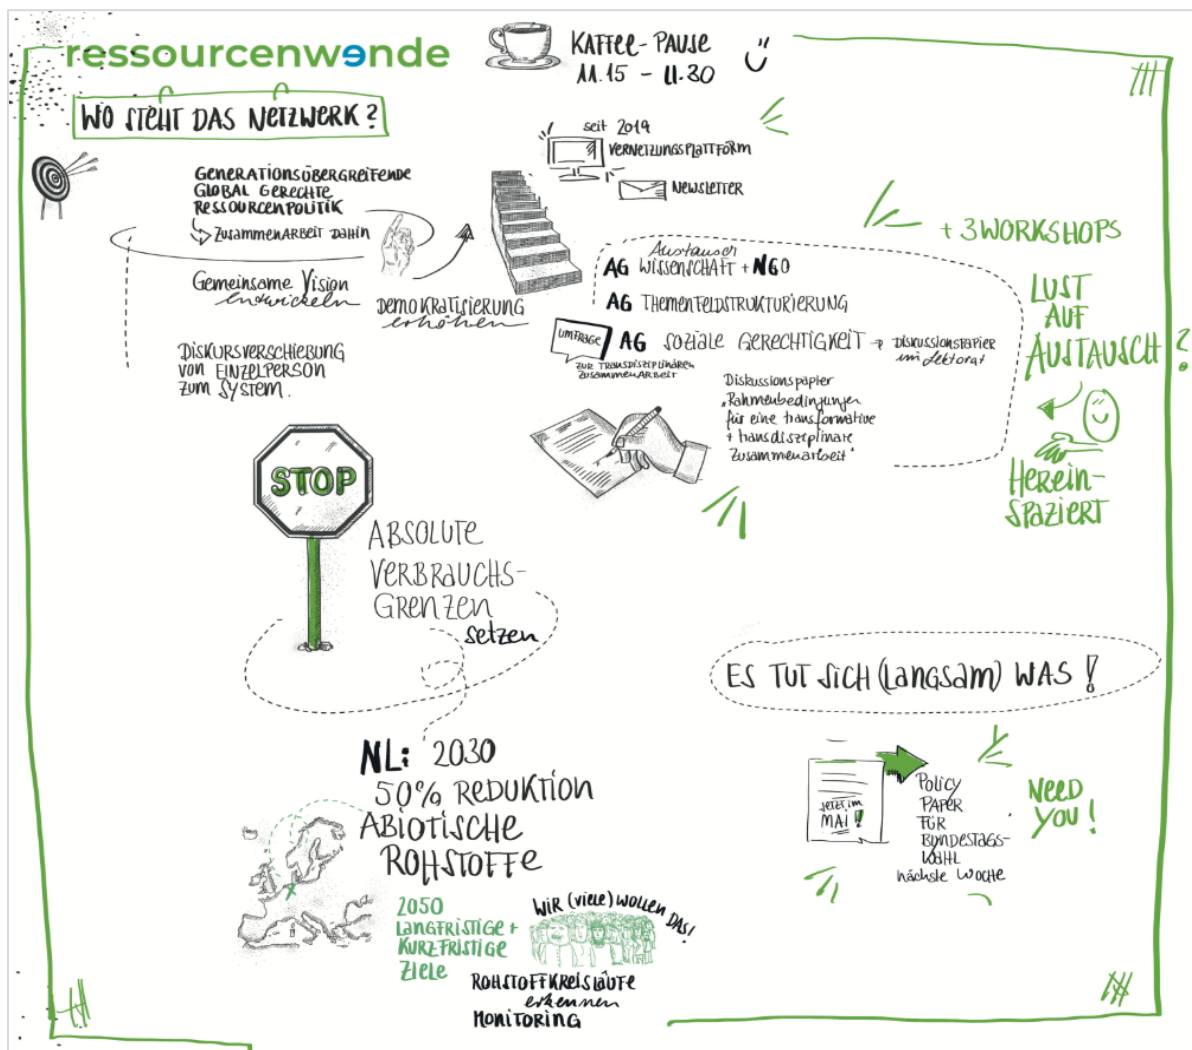 ressourcenwende
KAFFEE-PAUSE
11.15 - 11.30
WO STEHT DAS NETZWERK?
seit 2019
VERNETZUNGSPLATTFORM
NEWSLETTER
GENERATIONSÜBERGREIFENDE
GLOBAL GERECHTE
RESSOURCENPOLITIK
ZUSAMMENARBEIT DAHIN
Gemeinsame Vision
entwickeln
DEMOKRATISIERUNG
erhöhen
DISKURSVERSCHIEBUNG
VON EINZELPERSON
ZUM SYSTEM.
+ 3 WORKSHOPS
Austausch
AG WISSENSCHAFT + NGO
AG THEMENFELDSTRUKTURIERUNG
UMFRAGE
AG SOZIALE GERECHTIGKEIT → DISKUSSIONSPAPIER
im Lektorat
ZUR TRANSDISZIPLINÄREN
ZUSAMMENARBEIT
Diskussionspapier
„Rahmenbedingungen
für eine transformative
+ transdisziplinäre
Zusammenarbeit"
LUST
AUF
AUSTAUSCH?
HEREIN-
SPAZIERT
STOP
ABSOLUTE
VERBRAUCHS-
GRENZEN
setzen
ES TUT SICH (LANGSAM) WAS!
NL: 2030
50% REDUKTION
ABIOTISCHE
ROHSTOFFE
2050
LANGFRISTIGE +
KURZFRISTIGE
ZIELE
WIR (VIELE) WOLLEN DAS!
ROHSTOFFKREISLÄUFE
erkennen
MONITORING
JETZT IM
MAI!!
POLICY
PAPER
FÜR
BUNDESTAGS-
WAHL
nächste WOCHE
NEED
YOU!